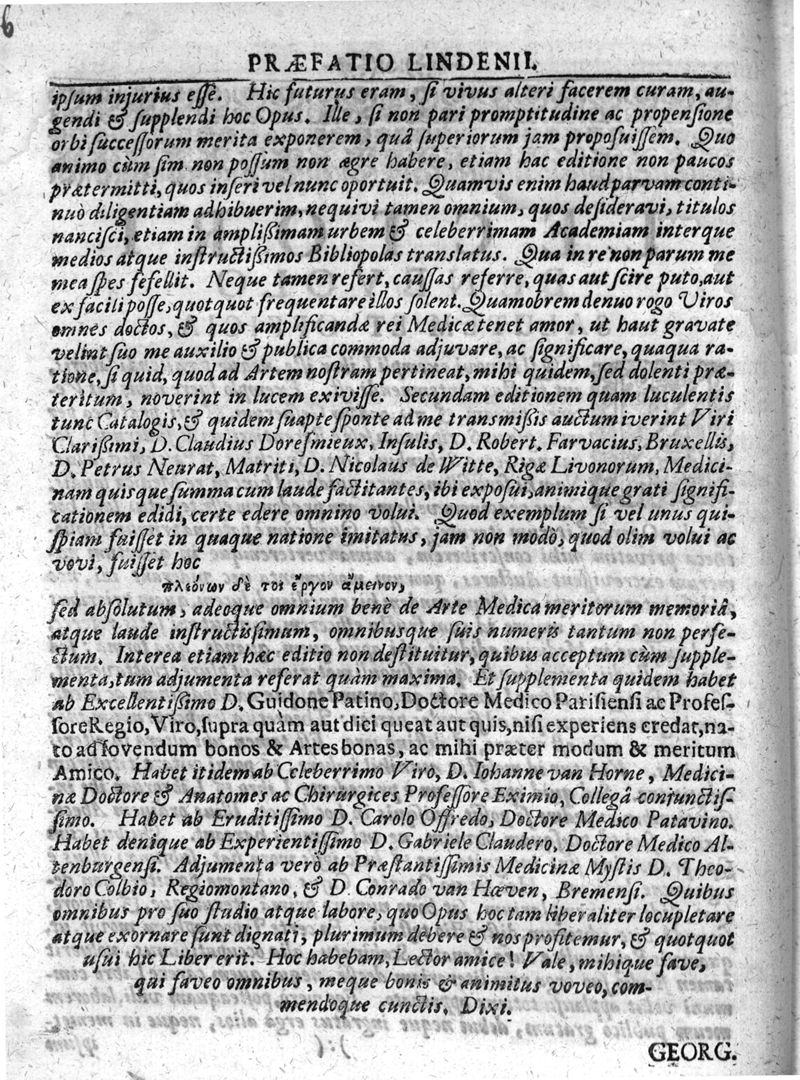 6
PRÆFATIO LINDENII.
ipsum injurius esse. Hic futurus eram, si vivus alteri facerem curam, au-
gendi & supplendi hoc Opus. Ille, si non pari promptitudine ac propensione
orbi successorum merita exponerem, quâ superiorum jam proposuissem. Quo
animo cùm sim non possum non ægre habere, etiam hac editione non paucos
prætermitti, quos inseri vel nunc oportuit. Quamvis enim haud parvam conti-
nuò diligentiam adhibuerim, nequivi tamen omnium, quos desideravi, titulos
nancisci, etiam in amplißimam urbem & celeberrimam Academiam interque
medios atque instructißimos Bibliopolas translatus. Qua in re non parum me
mea spes fefellit. Neque tamen refert, caussas referre, quas aut scire puto, aut
ex facili posse, quotquot frequentare illos solent. Quamobrem denuo rogo Viros
omnes doctos, & quos amplificandæ rei Medicæ tenet amor, ut haut gravate
velint suo me auxilio & publica commoda adjuvare, ac significare, quaqua ra-
tione, si quid, quod ad Artem nostram pertineat, mihi quidem, sed dolenti præ-
teritum, noverint in lucem exivisse. Secundam editionem quam luculentis
tunc Catalogis, & quidem suapte sponte ad me transmißis auctum iverint Viri
Clarißimi, D. Claudius Doresmieux, Insulis, D. Robert. Farvacius, Bruxellis,
D. Petrus Neurat, Matriti, D. Nicolaus de Witte, Rigæ Livonorum, Medici-
nam quisque summa cum laude factitantes, ibi exposui, animique grati signifi-
cationem edidi, certe edere omnino volui. Quod exemplum si vel unus qui-
spiam fuisset in quaque natione imitatus, jam non modò, quod olim volui ac
vovi, fuisset hoc
πλεόνων δέ τοι ἔργον ἄμεινον,
sed absolutum, adeoque omnium benè de Arte Medica meritorum memoriâ,
atque laude instructissimum, omnibusque suis numeris tantum non perfe-
ctum. Interea etiam hæc editio non destituitur, quibus acceptum cùm supple-
menta, tum adjumenta referat quàm maxima. Et supplementa quidem habet
ab Excellentißimo D. Guidone Patino, Doctore Medico Parisiensi ac Profes-
sore Regio, Viro, supra quàm aut dici queat aut quis, nisi experiens credat, na-
to ad fovendum bonos & Artes bonas, ac mihi præter modum & meritum
Amico. Habet itidem ab Celeberrimo Viro, D. Iohanne van Horne, Medici-
næ Doctore & Anatomes ac Chirurgices Professore Eximio, Collegâ conjunctis-
simo. Habet ab Eruditissimo D. Carolo Offredo, Doctore Medico Patavino.
Habet denique ab Experientissimo D. Gabriele Claudero, Doctore Medico Al-
tenburgensi. Adjumenta verò ab Præstantissimis Medicinæ Mystis D. Theo-
doro Colbio, Regiomontano, & D. Conrado van Hæven, Bremensi. Quibus
omnibus pro suo studio atque labore, quo Opus hoc tam liberaliter locupletare
atque exornare sunt dignati, plurimum debere & nos profitemur, & quotquot
usui hic Liber erit. Hoc habebam, Lector amice! Vale, mihique fave,
qui faveo omnibus, meque bonis & animitus voveo, com-
mendoque cunctis. Dixi.
GEORG.